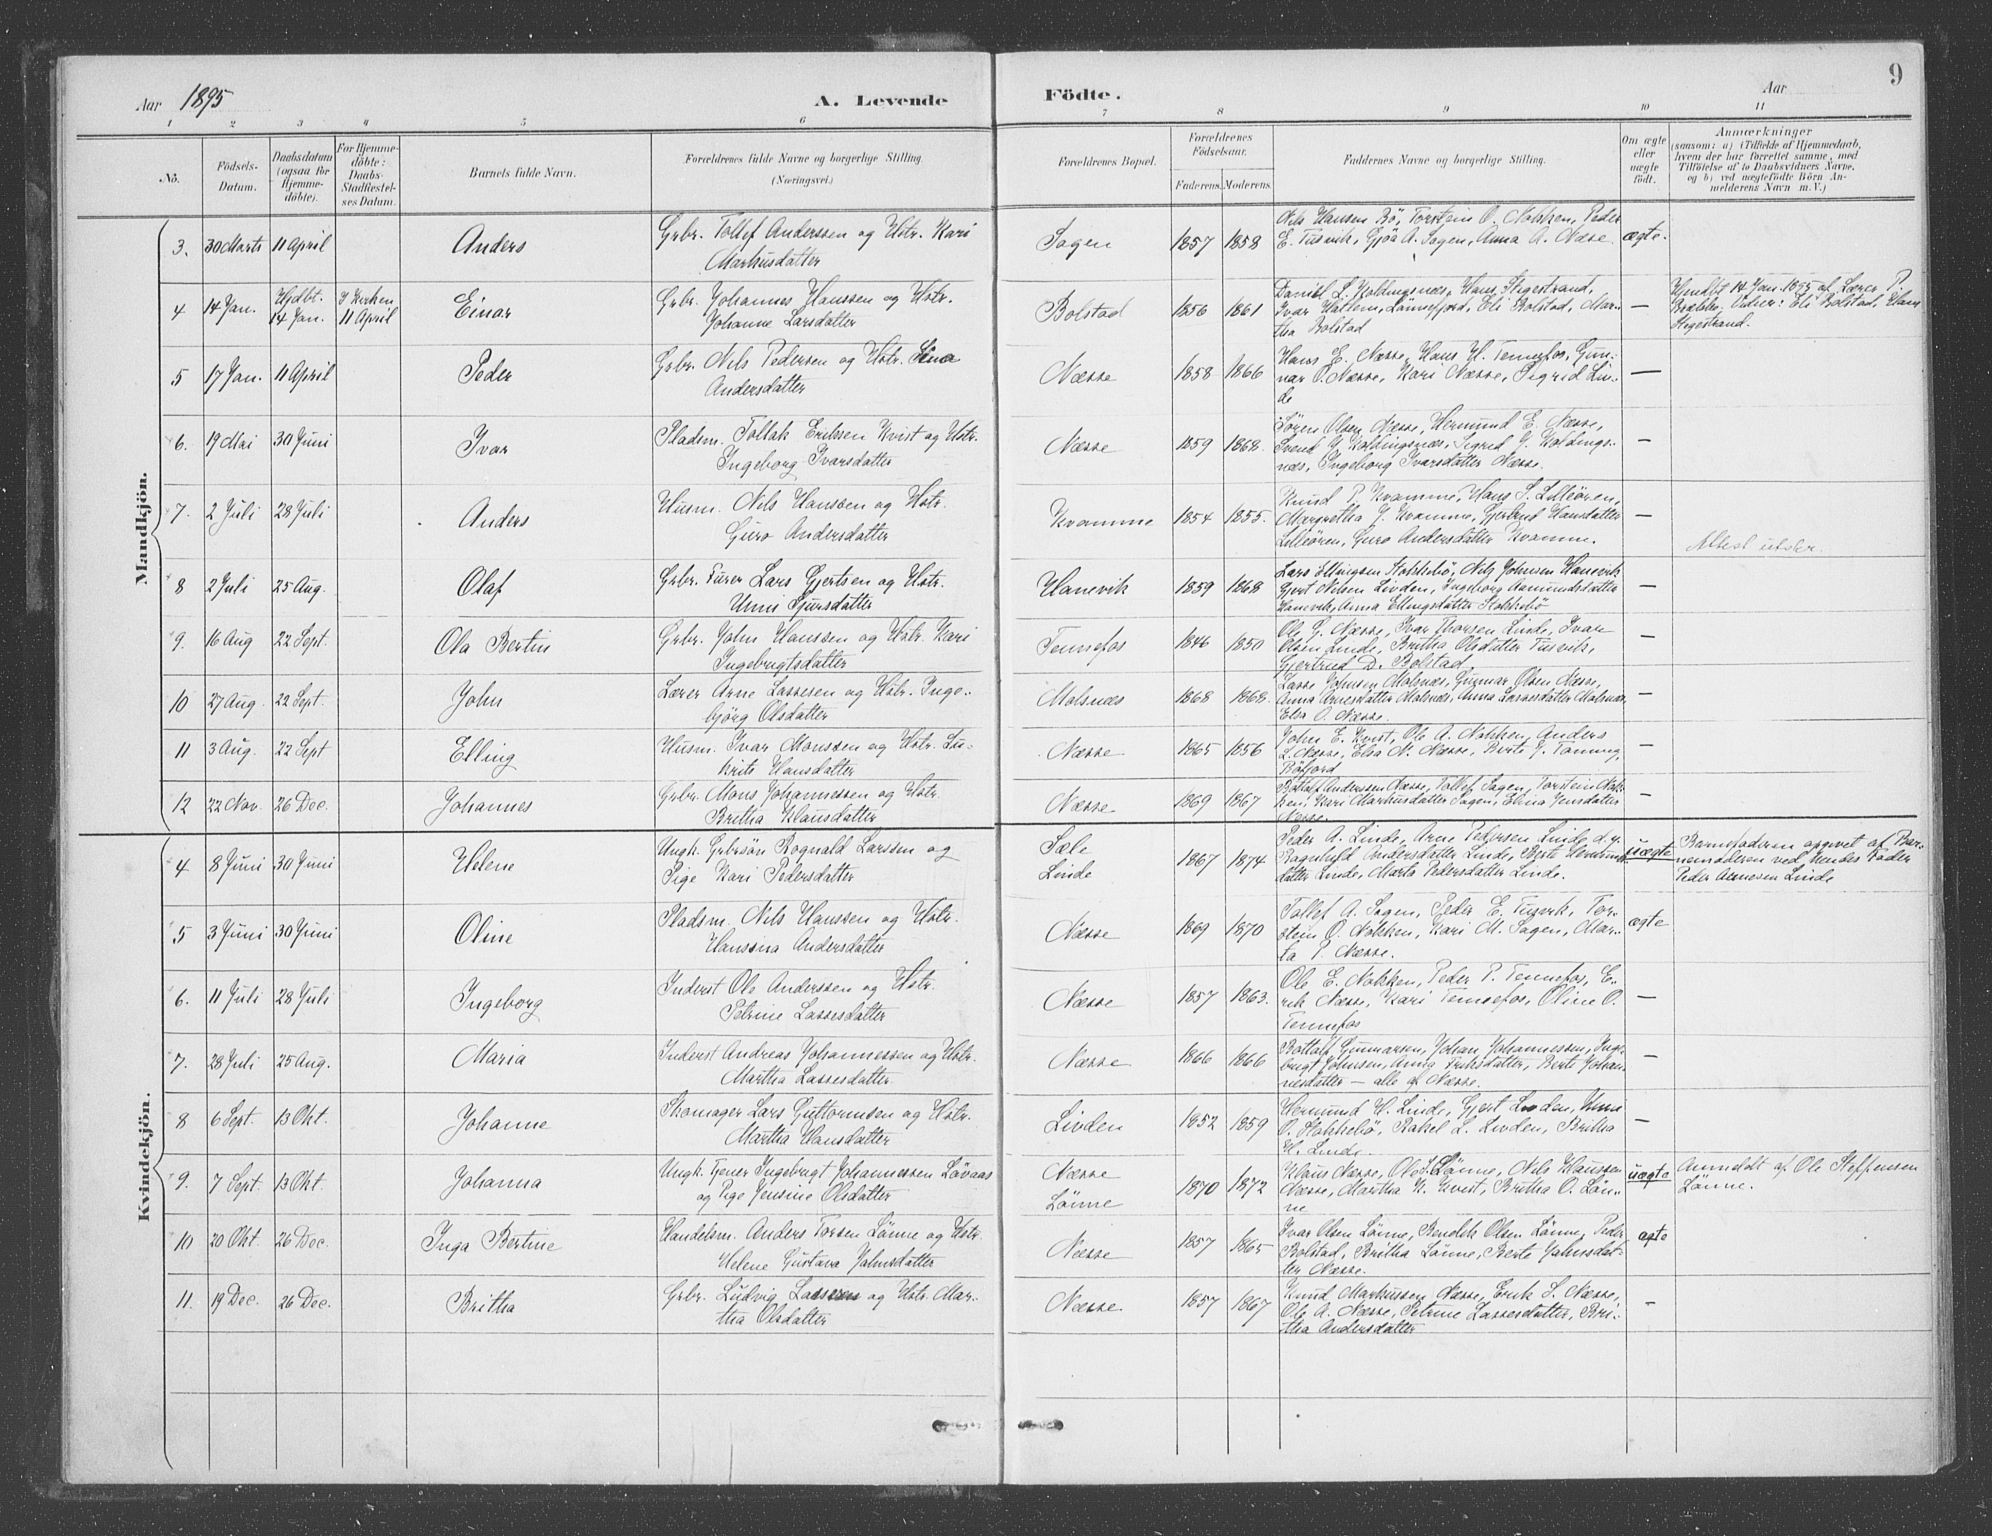 Aar 1895
A. Levende Födte.
Aar
9
1 2 3 4 5 6 7 8 9 10 11
No.
Födsels-
Datum.
Daabsdatum
(ogsaa for
Hjemme-
döbte).
For Hjemme-
döbte:
Daabs-
Stadfæstel-
ses Datum.
Barnets fulde Navn.
Forældrenes fulde Navne og borgerlige Stilling.
(Næringsvei.)
Forældrenes Bopæl.
Forældrenes
Födselsaar.
Faderens. Moderens.
Faddernes Navne og borgerlige Stilling.
Om ægte
eller
uægte
födt.
Anmærkninger
(saasom: a) (Tilfælde af Hjemmedaab,
hvem der har forrettet samme, med
Tilföielse af to Daabsvidners Navne,
og b) ved uægtefödte Börn An-
melderens Navn m. V.)
Mandkjön.
3. 30 Marts 11 April Anders Grbr. Tollef Anderssen og Hstr. Kari
Markusdatter
Sagen 1857 1858
Nils Hansen Bö, Torstein O. Nokken, Peder
E. Tusvik, Gjöa A. Sagen, Anna A. Næse
ægte.
4 14 Jan. Hjdbt.
14 Jan.
I Kirken
11 April
Einar Grbr. Johannes Hanssen og Hstr.
Johanne Larsdatter
Bolstad 1856 1861
Daniel L. Koldingsnæs, Hans Stegestrand,
Ivar Hattem, Lönnefjord, Eli Bolstad, Mar-
tha Bolstad
—
Hjmdbt 14 Jan. 1895 af Lærer P.
Vidner: Eli Bolstad, Hans
Stegestrand.
5 17 Jan. 11 April Peder Grbr. Nils Pedersen og Hstr. Sina
Andersdatter
Næsse 1858 1866
Hans E. Næsse, Hans H. Tennefos, Gun-
nar O. Næsse, Kari Næsse, Sigrid Lin-
de
—
6. 19 Mai 30 Juni Ivar Pladsm. Tollak Eriksen Kvist og Hstr.
Ingeborg Ivarsdatter
Næsse 1859 1868.
Sören Olsen Næsse, Hermund E. Næsse,
Svend Y. Koldingsnæs, Sigrid Y. Koldings-
næs, Ingeborg Ivarsdatter Næsse.
—
7. 2 Juli 28 Juli Anders Husm. Nils Hanssen og Hstr.
Guro Andersdatter
Kvamme 1854 1855.
Knud P. Kvamme, Hans S. Lilleören,
Margretha J. Kvamme, Gjertrud Hansdatter
Lilleören, Guro Andersdatter Kvamme.
—
Attest utstr.
8 2 Juli 25 Aug. Olaf Grbr. Furer Lars Gjertsen og Hstr.
Unni Sjursdatter
Hanevik 1859 1868
Lars Ellingsen Stokkebö, Nils Johnsen Hanevik
Gjert Nilsen Livden, Ingeborg Aamundsdatter
Hanevik, Anna Ellingsdatter Stokkebö
—
9. 16 Aug 22 Sept. Ola Bertin Grbr. John Hanssen og Hstr. Kari
Ingebrigtsdatter
Tennefos 1846 1850
Ole G. Næsse, Ivar Thorsen Linde, Ivar
Olsen Linde, Britha Olsdatter Tusvik,
Gjertrud D. Bolstad.
—
10 27 Aug. 22 Sept. John Lærer Arne Lassesen og Hstr. Inge-
björg Olsdatter
Molsnæs 1868 1868.
Lasse Johnsen Molsnæs, Gunnar Olsen Næsse,
Anna Arnesdatter Molsnæs, Anna Lassesdatter Molsnæs,
Elsa O. Næsse.
—
11 3 Aug. 22 Sept Elling Husm. Ivar Monssen og Hstr. Lu-
brite Hansdatter
Næsse 1865 1856
John E. Kvist, Ole A. Nokken, Anders
L. Næsse, Elsa N. Næsse, Berte J. Tonning,
Böfjord
—
12 22 Nov. 26 Dec. Johannes Grbr. Mons Johannessen og Hstr.
Britha Klausdatter
Næsse 1869 1867
Botolf Anderssen Næsse, Tollef Sagen, Torstein Nok-
ken, Kari Markusdatter Sagen, Elina Jensdatter
Næsse.
—
Kvindekjön.
4 8 Juni 30 Juni Helene Ungk. Grbrsön Rognald Larssen og
Pige Kari Pedersdatter
Sæle
Linde
1867 1874
Peder A. Linde, Arne Pedersen Linde d.y.
Ragnhild Andersdatter Linde, Berte Hermunds-
datter Linde, Marta Pedersdatter Linde.
uægte
Barnefaderen opgivet af Bar-
nemoderen ved hendes Fader
Peder Arnesen Linde
5 3 Juni 30 Juni Oline Pladsm. Nils Hanssen og Hstr.
Hanssna Andersdatter
Næsse 1869 1870
Tollef A. Sagen, Peder E. Tusvik, Tor-
stein O. Nokken, Kari M. Sagen, Mar-
ta P. Næsse.
ægte
6. 11 Juli 28 Juli Ingeborg Inderst Ole Anderssen og Hstr.
Petrine Lassesdatter
Næsse 1857 1863.
Ole E. Nokken, Peder P. Tennefos, E-
rik Næsse, Kari Tennefos, Oline O.
Tennefos
—
7. 28 Juli 25 Aug. Maria Inderst Andreas Johannessen og Hstr.
Martha Lassesdatter
Næsse 1866 1866
Bottolf Gunnarsen, Johan Johannessen, Inge-
brigt Johnsen, Anna Eriksdatter, Berte Johan-
nesdatter — alle af Næsse.
—
8 6 Sept. 13 Okt. Johanne Skomager Lars Guttormsen og Hstr.
Martha Hansdatter
Livden 1852 1859
Hermund H. Linde, Gjert Livden, Unni
O. Stokkebö, Rakel L. Livden, Britha
H. Linde.
—
9. 7 Sept. 13 Okt. Johanna Ungk. Tjener Ingebrigt Johannessen Lövaas
og Pige Jensine Olsdatter
Næsse
Lönne
1870 1872
Klaus Næsse, Ole S. Lönne, Nils Klaussen
Næsse, Martha K. Kvist, Britha O. Lön-
ne
uægte
Anmeldt af Ole Steffensen
Lönne.
10 20 Okt. 26 Dec. Inga Bertine Handelsm. Anders Torsen Lönne og Hstr.
Helene Gustava Jahnsdatter
Næsse 1857 1865
Ivar Olsen Lönne, Bendik Olsen Lönne, Peder
Bolstad, Britha Lönne, Berte Jahnsdat-
ter Næsse.
ægte
11. 19 Dec. 26 Dec. Britha Grbr. Ludvig Lassesen og Hstr. Mar-
tha Olsdatter
Næsse 1857 1867
Knud Markussen Næsse, Erik S. Næsse,
Ole A. Næsse, Petrine Lassesdatter, Bri-
tha Andersdatter
—